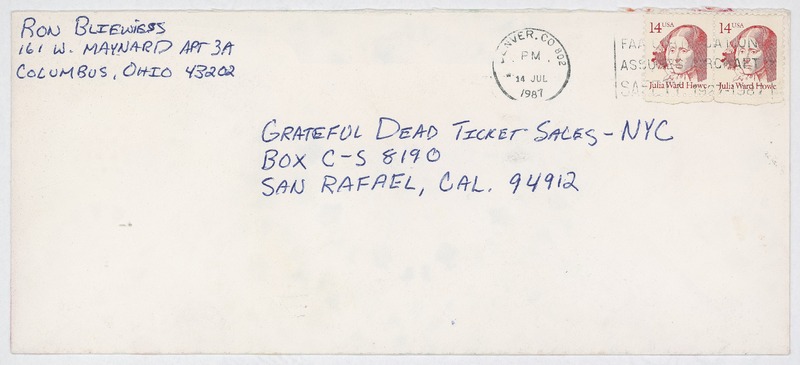 RON BLIEWEISS
161 W. MAYNARD APT 3A
COLUMBUS, OHIO 43202
DENVER, CO 802
PM
14 JUL
1987
14 USA
Julia Ward Howe
14 USA
Julia Ward Howe
FAA
ASSURES AIRCRAFT
SAFETY 1927-1987
GRATEFUL DEAD TICKET SALES - NYC
BOX C-S 8190
SAN RAFAEL, CAL. 94912